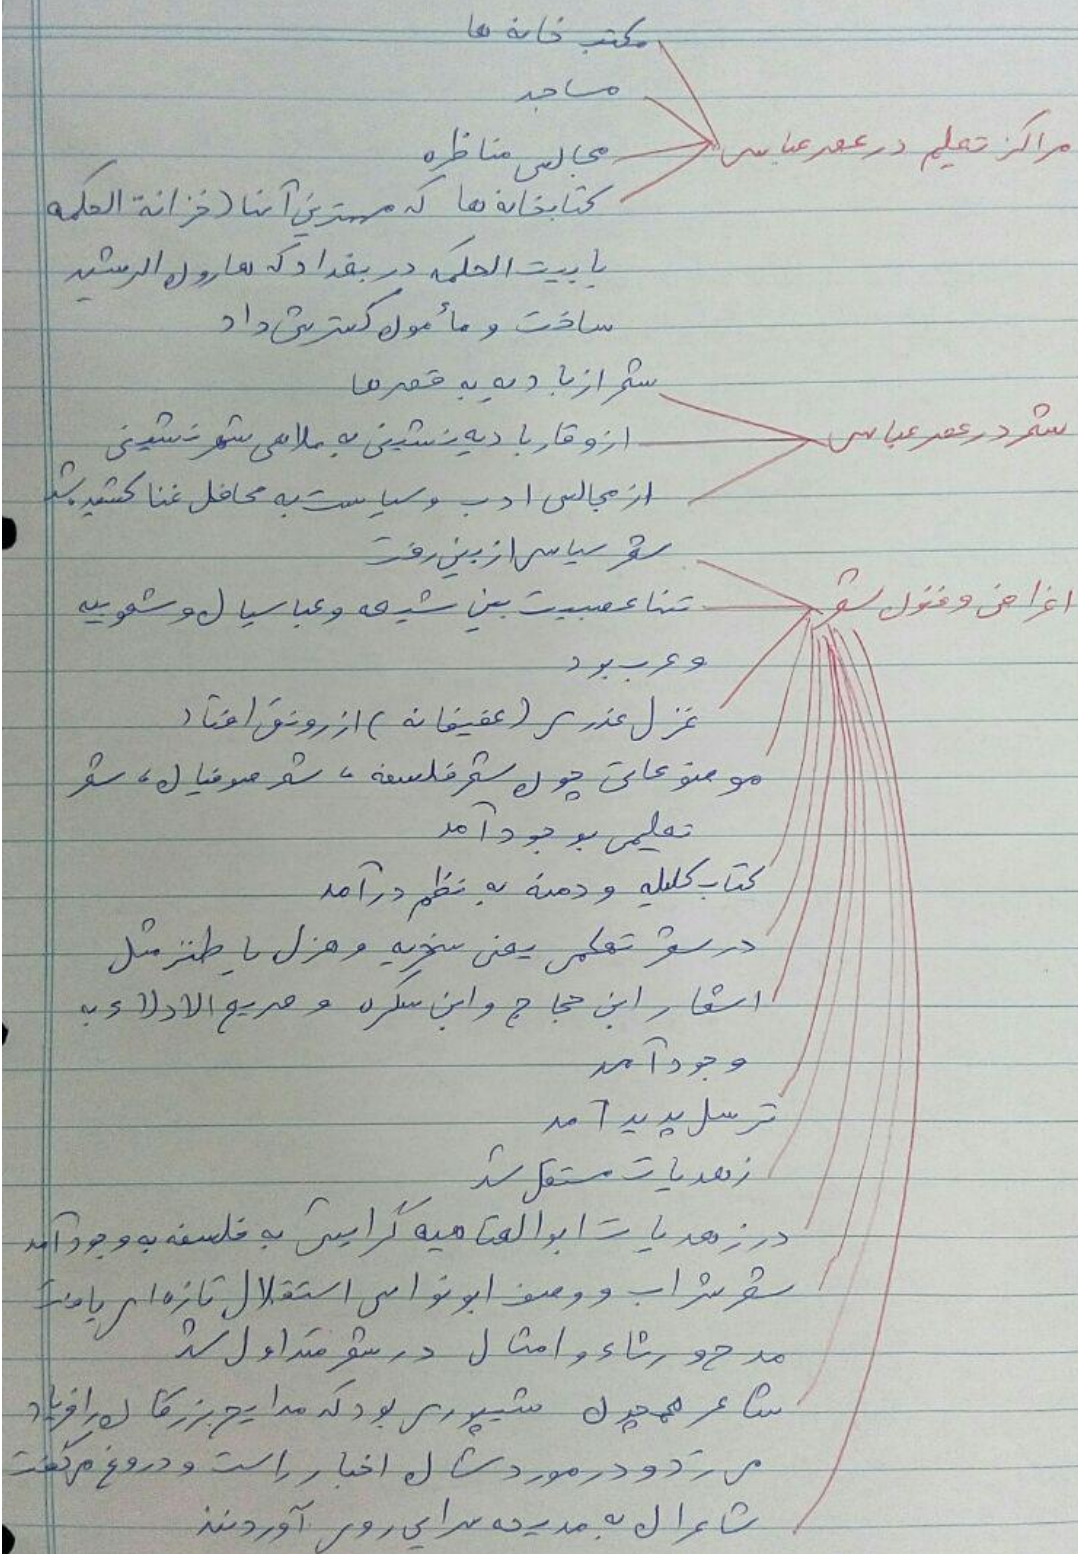 مکتب خانه ها
مساجد
مراکز تعلیم در عصر عباسی
مجالس مناظره
کتابخانه ها که مهمترین آنها (خزانة الحکمه
یا بیت الحکمه در بغداد که هارون الرشید
ساخت و مأمون گسترش داد
شعر از بادیه به قصرها
شعر در عصر عباسی
از وقار بادیه نشینی به ملاهی شهرنشینی
از مجالس ادب و سیاست به محافل غنا کشیده شد
شعر سیاسی از بین رفت
اغراض و فنون شعر
تنها عصبیت بین شیعه و عباسیان و شعوبیه
و عرب بود
غزل عذری (عفیفانه) از رونق افتاد
موضوعاتی چون شعر فلسفه ، شعر صوفیان ، شعر
تعلیمی بوجود آمد
کتاب کلیله و دمنه به نظم درآمد
در شعر تهکمی یعنی سخریه و هزل یا طنز مثل
اشعار ابن حجاج و ابن سکره و صریع الدلاء به
وجود آمد
ترسل پدید آمد
زهدیات مستقل شد
در زهدیات ابوالعتاهیه گرایش به فلسفه به وجود آمد
شعر شراب و وصف ابونواس استقلال تازه ای یافت
مدح و رثاء و امثال در شعر متداول شد
شاعر همچون شیپوری بود که مدایح بزرگان را فریاد
می زد و در موردشان اخبار راست و دروغ می گفت
شاعران به مدیحه سرایی روی آوردند